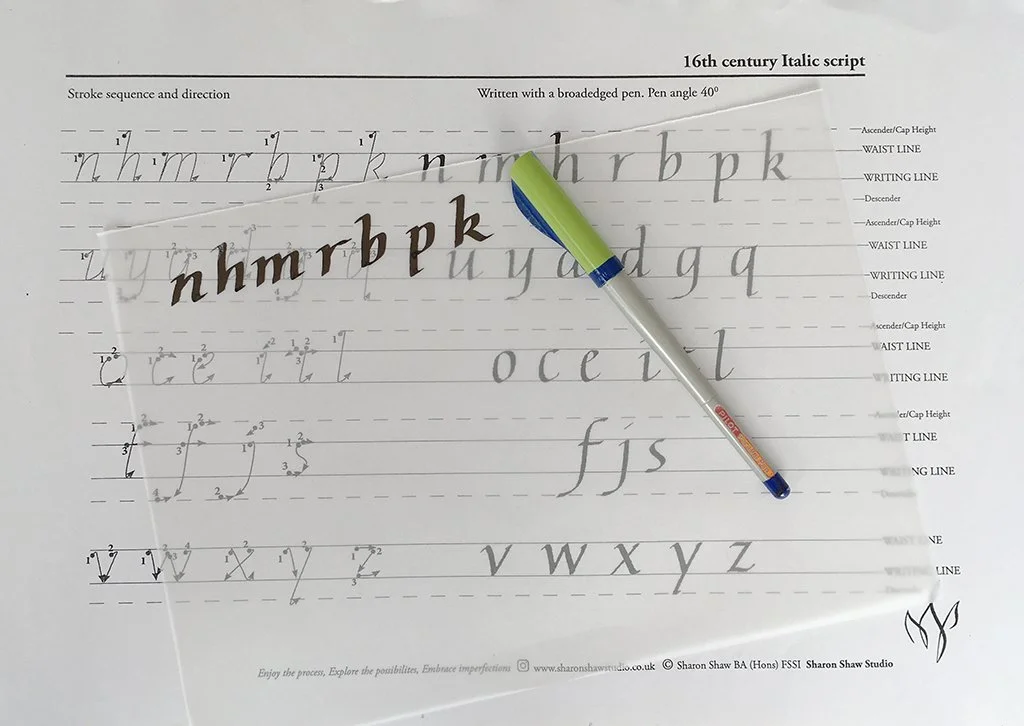 16th century Italic script
Stroke sequence and direction
Written with a broadedged pen. Pen angle 40⁰
Ascender/Cap Height
n h m r b p k n m h r b p k
WAIST LINE
WRITING LINE
Descender
n h m r b p k
Ascender/Cap Height
u y a d g q
WAIST LINE
WRITING LINE
Descender
Ascender/Cap Height
o c e i t l o c e i t l
WAIST LINE
WRITING LINE
Ascender/Cap Height
t f j s f j s
WAIST LINE
WRITING LINE
Descender
PILOT
v w x y z v w x y z
WAIST LINE
WRITING LINE
Descender
Enjoy the process, Explore the possibilites, Embrace imperfections www.sharonshawstudio.co.uk © Sharon Shaw BA (Hons) FSSI Sharon Shaw Studio